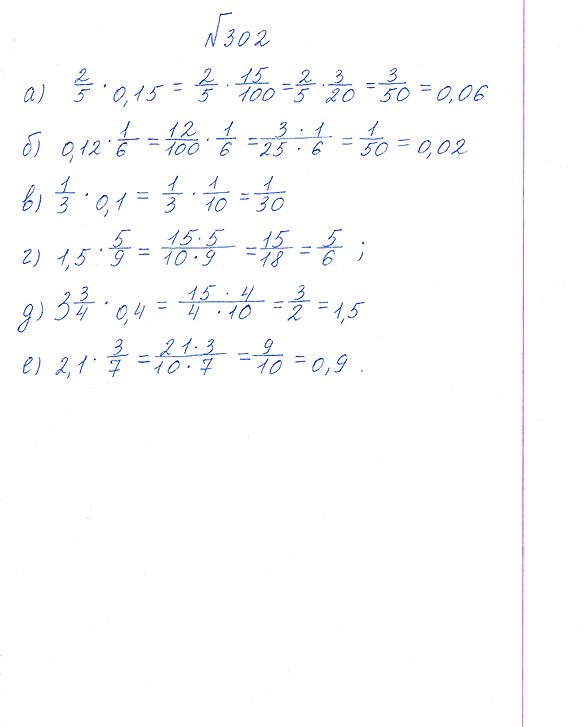 №302
а) 2/5 · 0,15 = 2/5 · 15/100 = 2/5 · 3/20 = 3/50 = 0,06
б) 0,12 · 1/6 = 12/100 · 1/6 = 3 · 1/25 · 6 = 1/50 = 0,02
в) 1/3 · 0,1 = 1/3 · 1/10 = 1/30
г) 1,5 · 5/9 = 15 · 5/10 · 9 = 15/18 = 5/6 ;
д) 3 3/4 · 0,4 = 15 · 4/4 · 10 = 3/2 = 1,5
е) 2,1 · 3/7 = 21 · 3/10 · 7 = 9/10 = 0,9 .